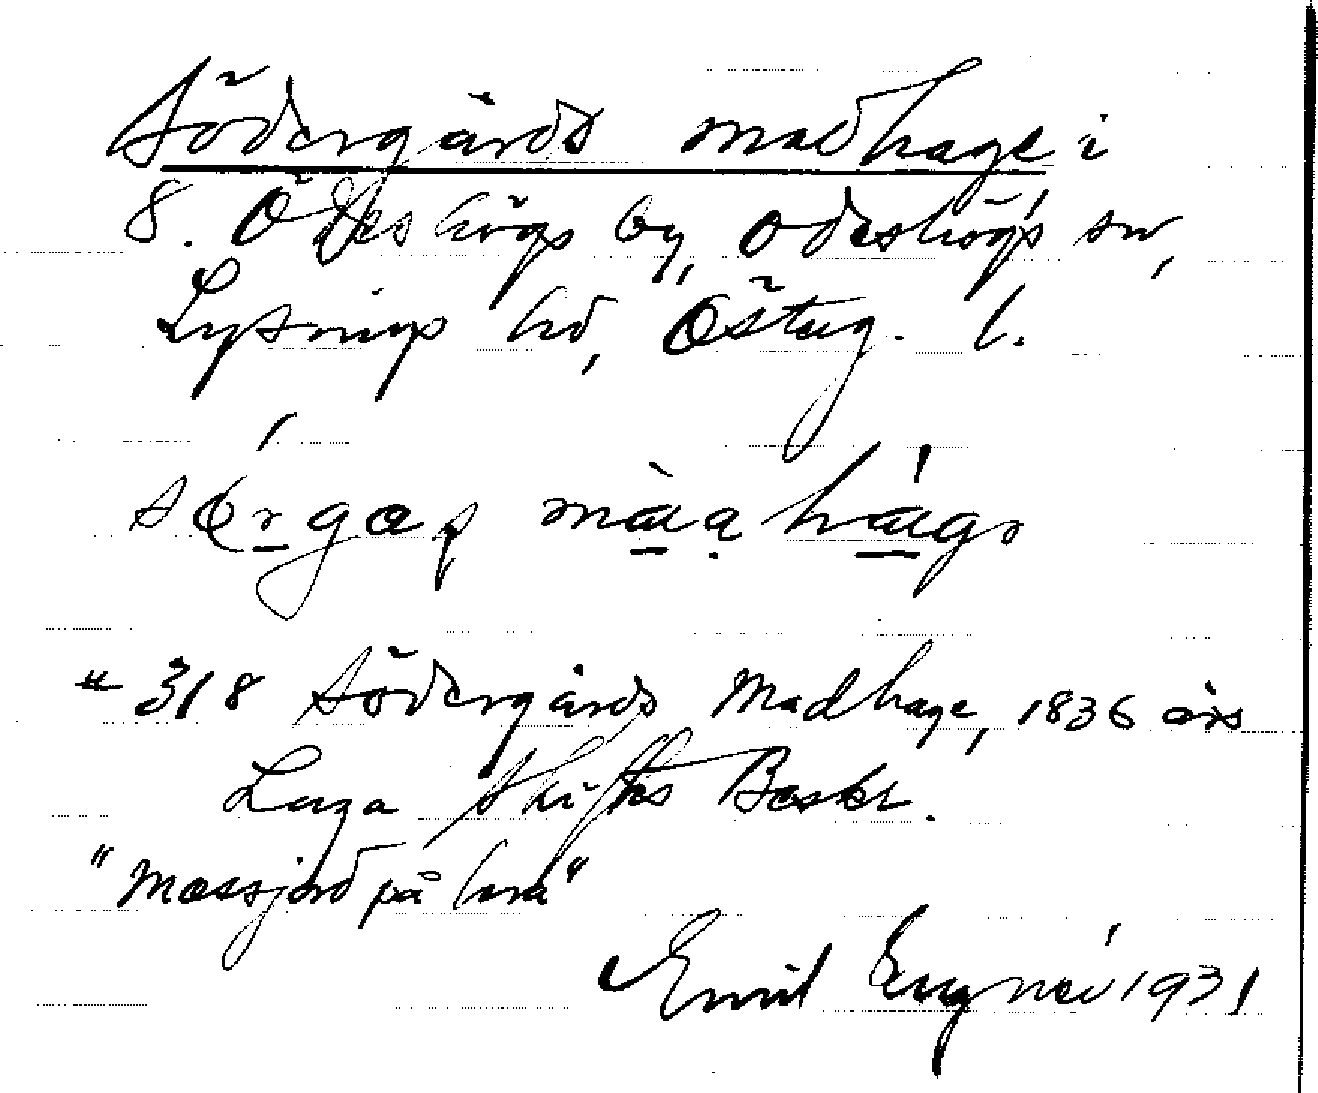 Södergårds madhage i
8. Ödeshögs by, Ödeshögs sn,
Lysings hd, Östug. l.
318 Södergårds Madhage, 1836 års
Laga Skiftes Beskr.
"Mossjord på lera"
Emil 1931